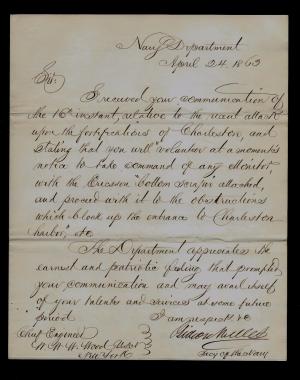 Navy Department
April 24, 1863
Sir:
I received your communication of
the 16th instant, relative to the naval attack
upon the fortifications of Charleston, and
stating that you will volunteer at a moments
notice to take command of any Monitor,
with the Ericsson "bottom scraper" attached,
and proceed with it to the obstructions
which block up the entrance to Charleston
harbor," etc.
The Department appreciates the
earnest and patriotic feeling that prompted
your communication and may avail itself
of your talents and services at some future
period.
I am respect. &c
Gideon Welles
Secy of the Navy
Chief Engineer
W. W. W. Wood
New York